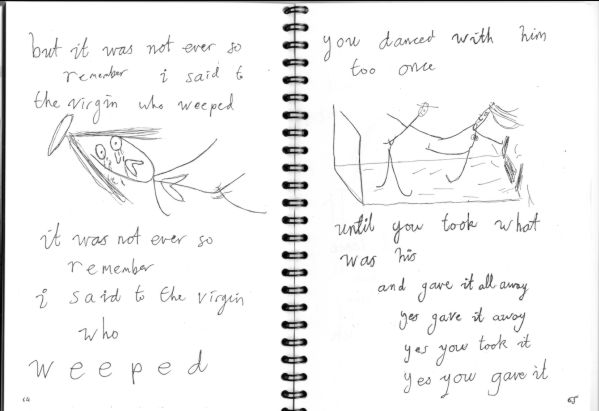 but it was not ever so
remember i said to
the virgin who weeped
it was not ever so
remember
i said to the virgin
who
weeped
64
you danced with him
too once
until you took what
was his
and gave it all away
yes gave it away
yes you took it
yes you gave it
65